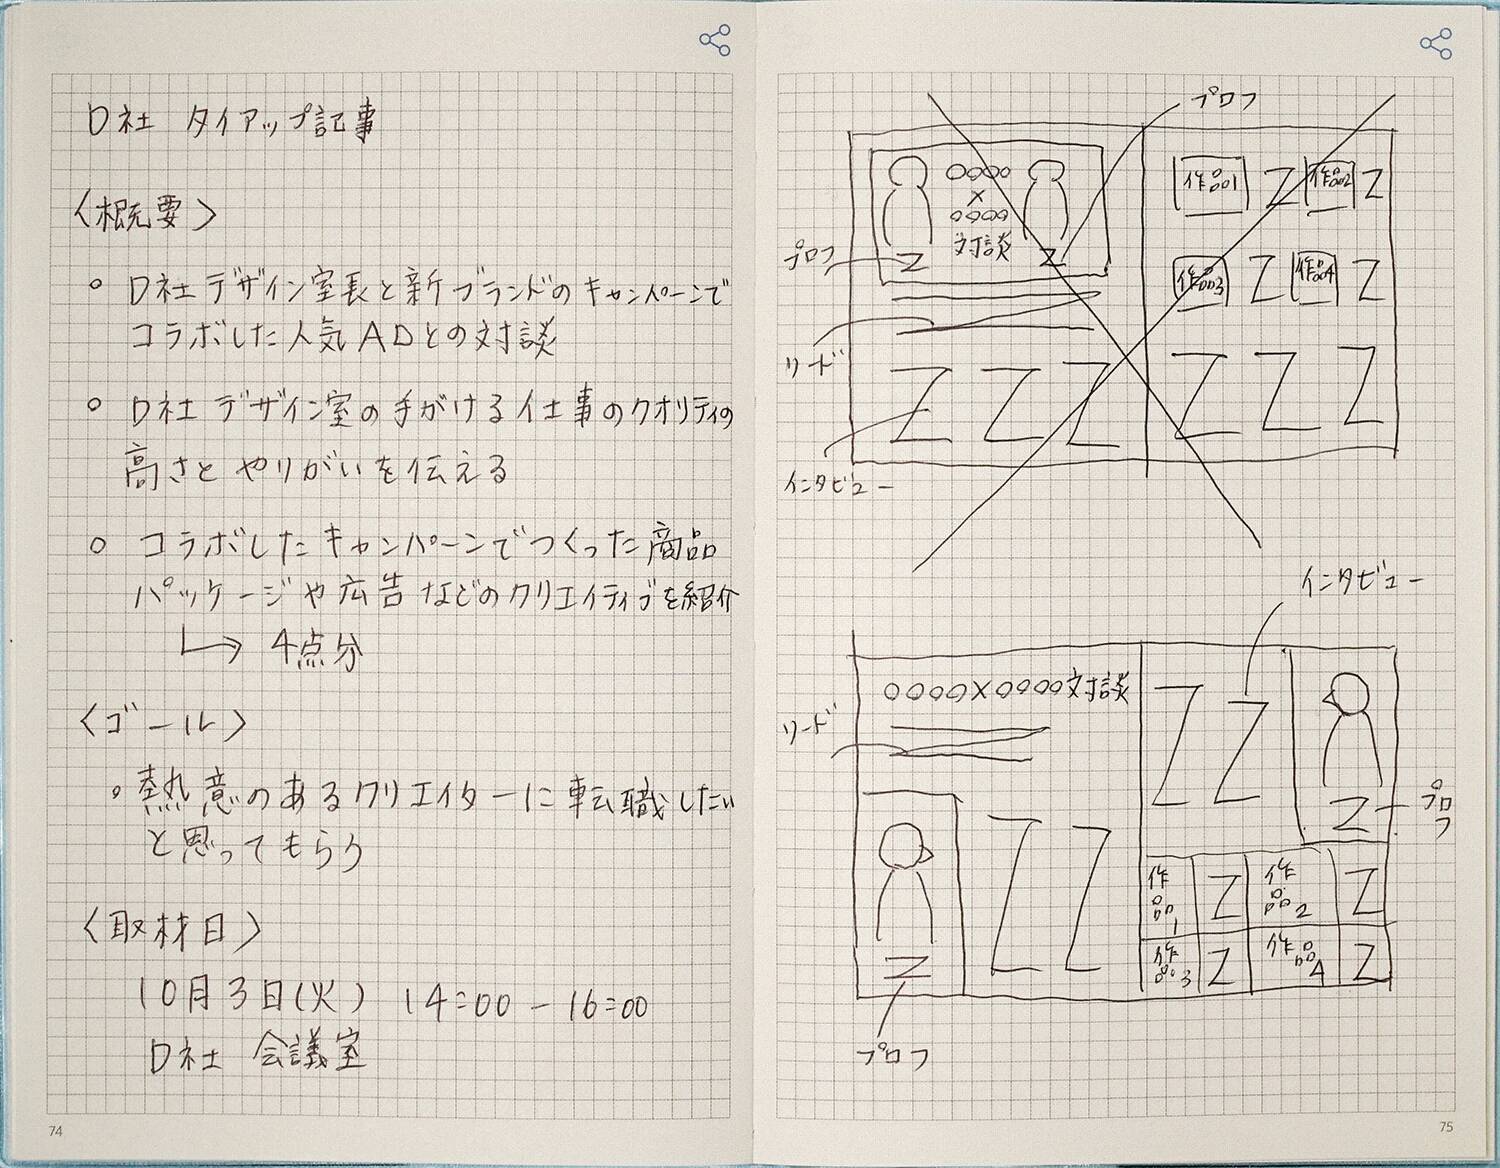 D社 タイアップ記事
〈概要〉
○ D社デザイン室長と新ブランドのキャンペーンで
コラボした人気ADとの対談
○ D社デザイン室の手がける仕事のクオリティの
高さとやりがいを伝える
○ コラボしたキャンペーンでつくった商品
パッケージや広告などのクリエイティブを紹介
→ 4点分
〈ゴール〉
○ 熱意のあるクリエイターに転職したい
と思ってもらう
〈取材日〉
10月3日(火) 14:00 - 16:00
D社 会議室
74
プロフ
○○○○
×
○○○○
対談
プロフ
リード
インタビュー
作品1
作品2
作品3
作品4
インタビュー
○○○○×○○○○対談
リード
プロフ
プロフ
作品1
作品2
作品3
作品4
75